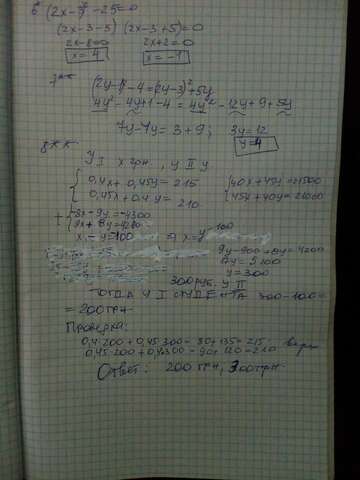 6 (2x-3)² -25=0
(2x-3-5) (2x-3+5)=0
2x-8=0 2x+2=0
x=4 x=-1
7**
(2y-1)²-4=(2y-3)²+5y
4y²-4y+1-4=4y²-12y+9+5y
7y-4y=3+9; 3y=12
y=4
8**
У I х грн, у II у
0,4x+0,45y=215 40x+45y=21500
0,45x+0,4y=210 45x+40y=21000
+ -8x-9y=-4300
9x+8y=4200
x-y=-100 => x=y-100
9y-900+8y=4200
17y=5100
y=300
300 руб. у II
тогда у I студента 300-100=
=200 грн
Проверка:
0,4·200+0,45·300=80+135=215, верно
0,45·200+0,4·300=90+120=210
Ответ: 200 грн, 300 грн